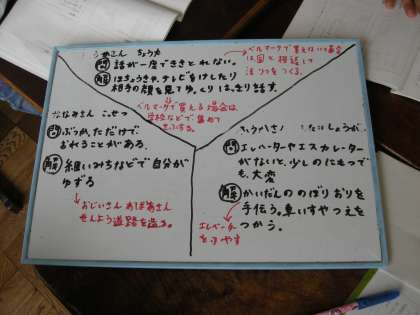 うめさん ちょうか
問 話が一度でききとれない。
解 ほちょうきや、テレビをけしたり
相手の顔を見てゆっくりはっきり話す。
ベルマークで買えない場合
は国と相談して
法りつをつくる。
ベルマークで買える場合は
学校などで集めて
ななみさん こっせつ
問 ぶつかっただけで
おれることがある。
解 細いみちなどで自分が
ゆずる
おじいさん おばあさん
せんよう道路を造る。
問 エレベーターやエスカレーター
がないと、少しのにもつで
も、大変
解 かいだんののぼりおりを
手伝う。車いすやつえを
つかう。
エレベーター
をふやす